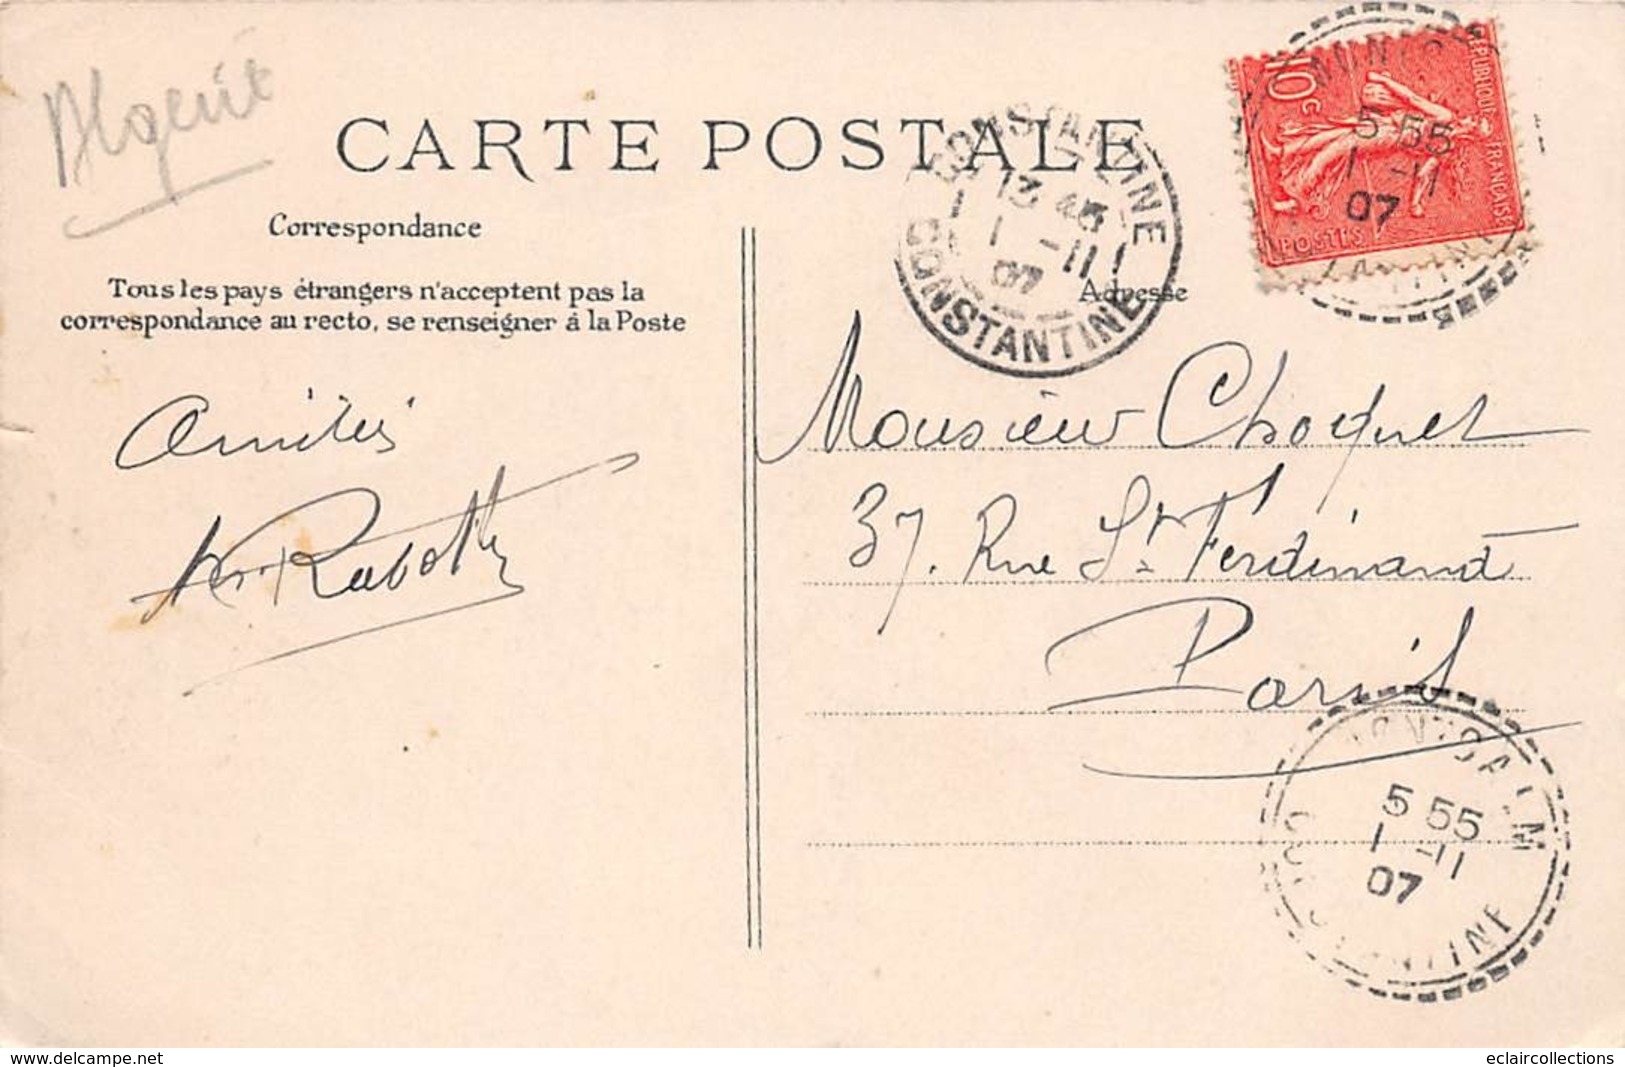 Algérie
CARTE POSTALE
Correspondance
Tous les pays étrangers n'acceptent pas la
correspondance au recto, se renseigner à la Poste
Amitiés
CONSTANTINE
13 45
1 -11
07
CONSTANTINE
RÉPUBLIQUE FRANÇAISE
10c
POSTES
5 55
1 -11
07
Adresse
Monsieur Choquet
37, Rue St Ferdinand
Paris
MONTCALM
5 55
1 -11
07
CONSTANTINE
www.delcampe.net
eclaircollections